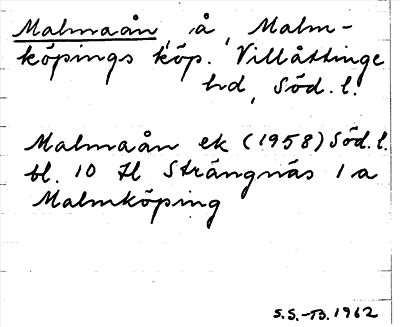 Malmaån, å, Malm-
köpings köp. Villåttinge
hd, Söd. l.
Malmaån ek (1958) Söd. l.
bl. 10 Il Strängnäs 1 a
Malmköping
S.S.-B. 1962